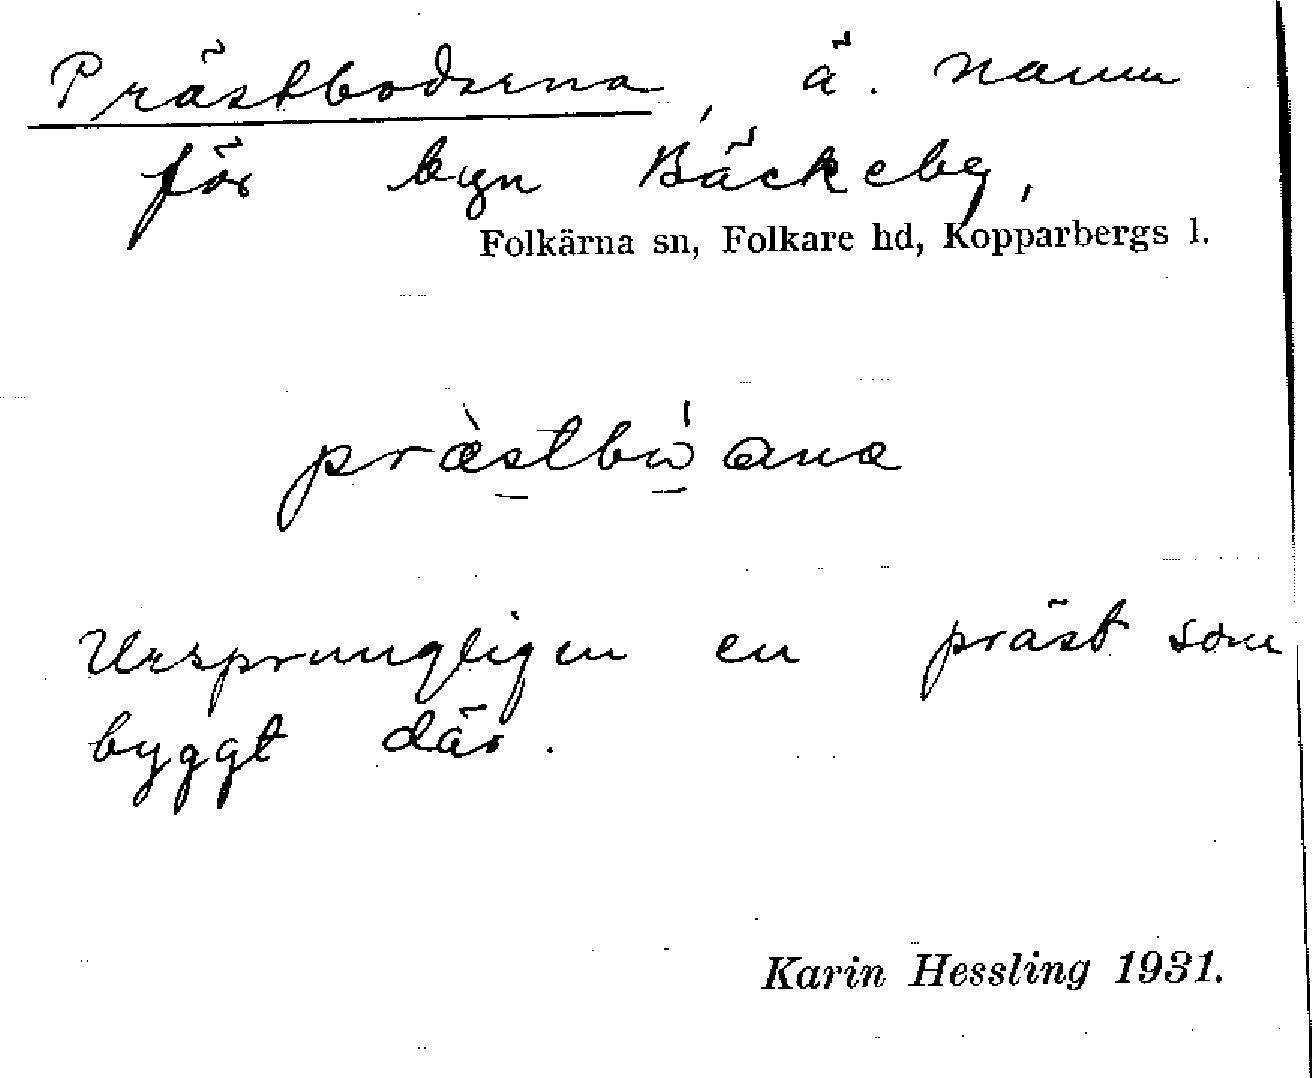 Prästboderna, ä. namn
för byn Bäckeby,
Folkärna sn, Folkare hd, Kopparbergs l.
Ursprungligen en präst som
byggt där.
Karin Hessling 1931.